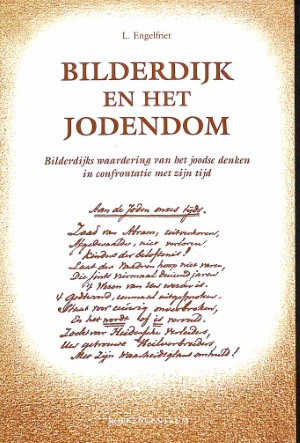 L. Engelfriet
BILDERDIJK
EN HET
JODENDOM
Bilderdijks waardering van het joodse denken
in confrontatie met zijn tijd
Aan de Joden onzes tijds.
Zaad van Abram, uitverkoren,
Afgedwaalde, niet verloren
Kinders der belofteniss!
Laat der Vaadren hoop niet varen,
Die sints viermaal duizend jaren
't Wezen van Uw weezen is.
't Godswoord, eenmaal uitgesproken,
Staat voor eeuwig onverbroken,
En het wordt of is vervuld.
Zoekt voor Heidensche verleiders,
Uw getrouwe Heilverbreiders,
Met Zijn waarheidsglans omhuld!
BOEKENCENTRUM